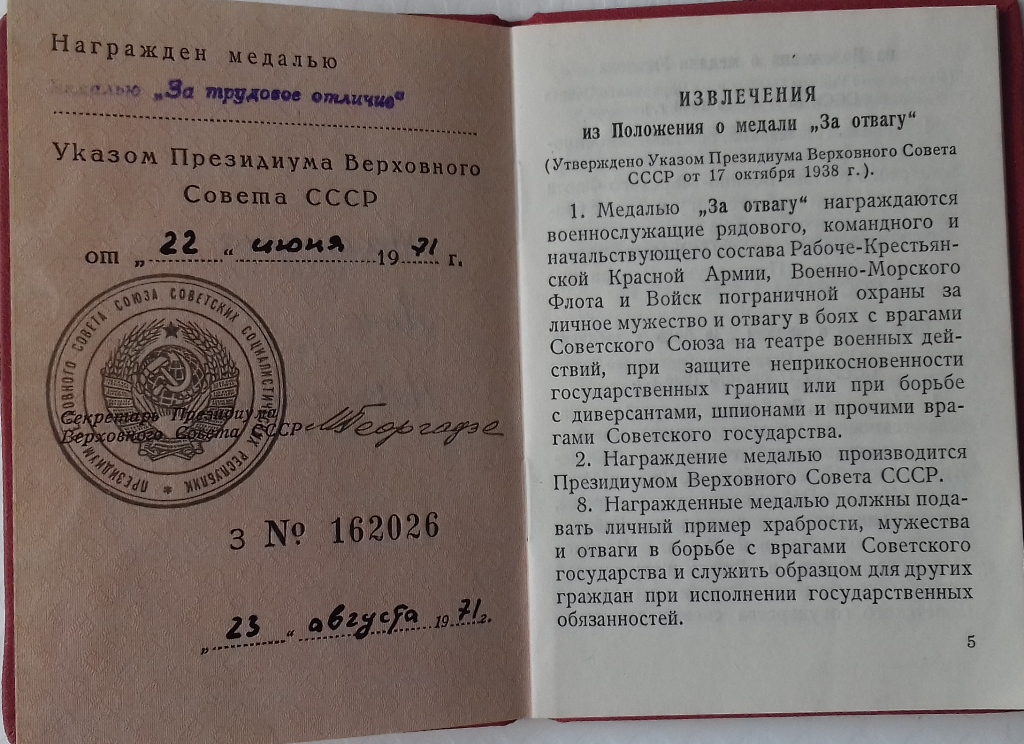 Награжден медалью
медалью „За трудовое отличие"
Указом Президиума Верховного
Совета СССР
от „22" июня 1971 г.
ПРЕЗИДИУМ ВЕРХОВНОГО СОВЕТА СОЮЗА СОВЕТСКИХ СОЦИАЛИСТИЧЕСКИХ РЕСПУБЛИК
Секретарь Президиума
Верховного Совета СССР М Георгадзе
З № 162026
„23" августа 1971 г.
ИЗВЛЕЧЕНИЯ
из Положения о медали „За отвагу"
(Утверждено Указом Президиума Верховного Совета
СССР от 17 октября 1938 г.).
1. Медалью „За отвагу" награждаются
военнослужащие рядового, командного и
начальствующего состава Рабоче-Крестьян-
ской Красной Армии, Военно-Морского
Флота и Войск пограничной охраны за
личное мужество и отвагу в боях с врагами
Советского Союза на театре военных дей-
ствий, при защите неприкосновенности
государственных границ или при борьбе
с диверсантами, шпионами и прочими вра-
гами Советского государства.
2. Награждение медалью производится
Президиумом Верховного Совета СССР.
8. Награжденные медалью должны пода-
вать личный пример храбрости, мужества
и отваги в борьбе с врагами Советского
государства и служить образцом для других
граждан при исполнении государственных
обязанностей.
5